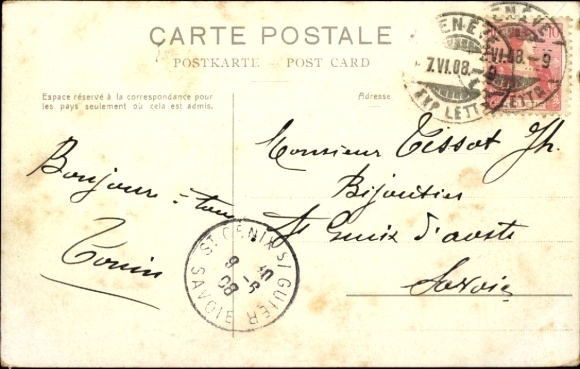 CARTE POSTALE
POSTKARTE — POST CARD
Espace réservé à la correspondance pour
les pays seulement où cela est admis.
Adresse
Bonjour à tous
Tonin
Monsieur Tissot Jh.
Bijoutier
St Genix d'aoste
Savoie
7.VI.08.-9
EXP. LETTR.
10
ST GENIX S/GUIER
9 -6
08
SAVOIE